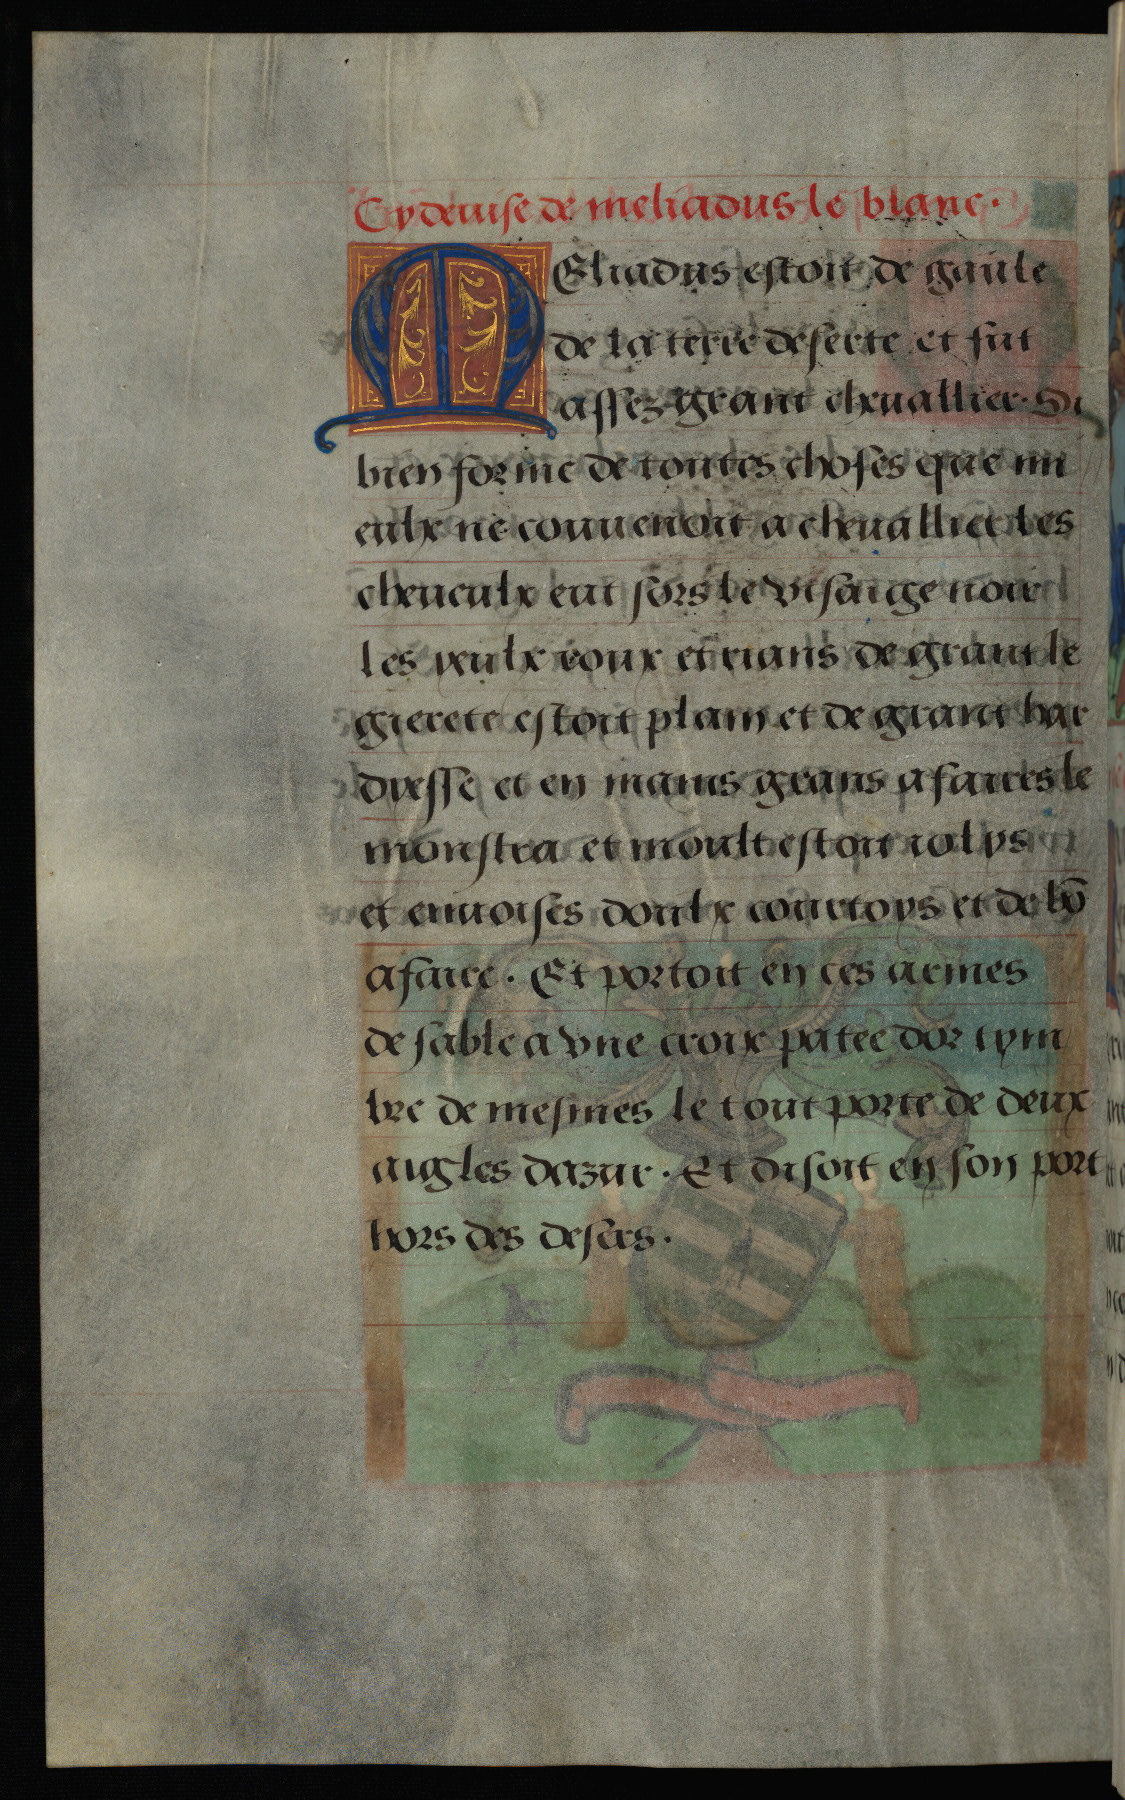 Cy deuise de meliadus le blanc.
MEliadus estoit de gaule
de la terre deserte et fut
assez grant cheuallier. Si
bien forme de toutes choses que mi
eulx ne conuenoit a cheuallier les
cheueulx eut sors le visaige noir
les yeulx roux et rians de grant le
gierete estoit plain et de grant har
diesse et en mains grans afaires le
monstra et moult estoit iolys
et enuoises doulx courtoys et de bō
afaire. Et portoit en ces armes
de sable a vne croix patee dor tym
bre de mesmes le tout porte de deux
aigles dazur. Et disoit en son port
hors des desers.